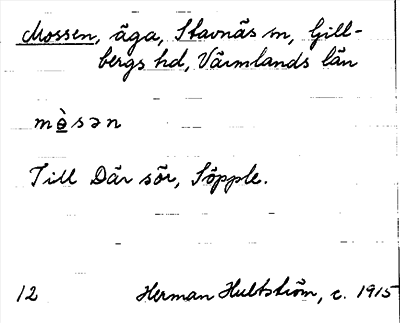 Mossen, äga, Stavnäs sn, Gill-
bergs hd, Värmlands län
mɵ̀sən
Till Där sör, Söpple.
12 Herman Hultström, c. 1915